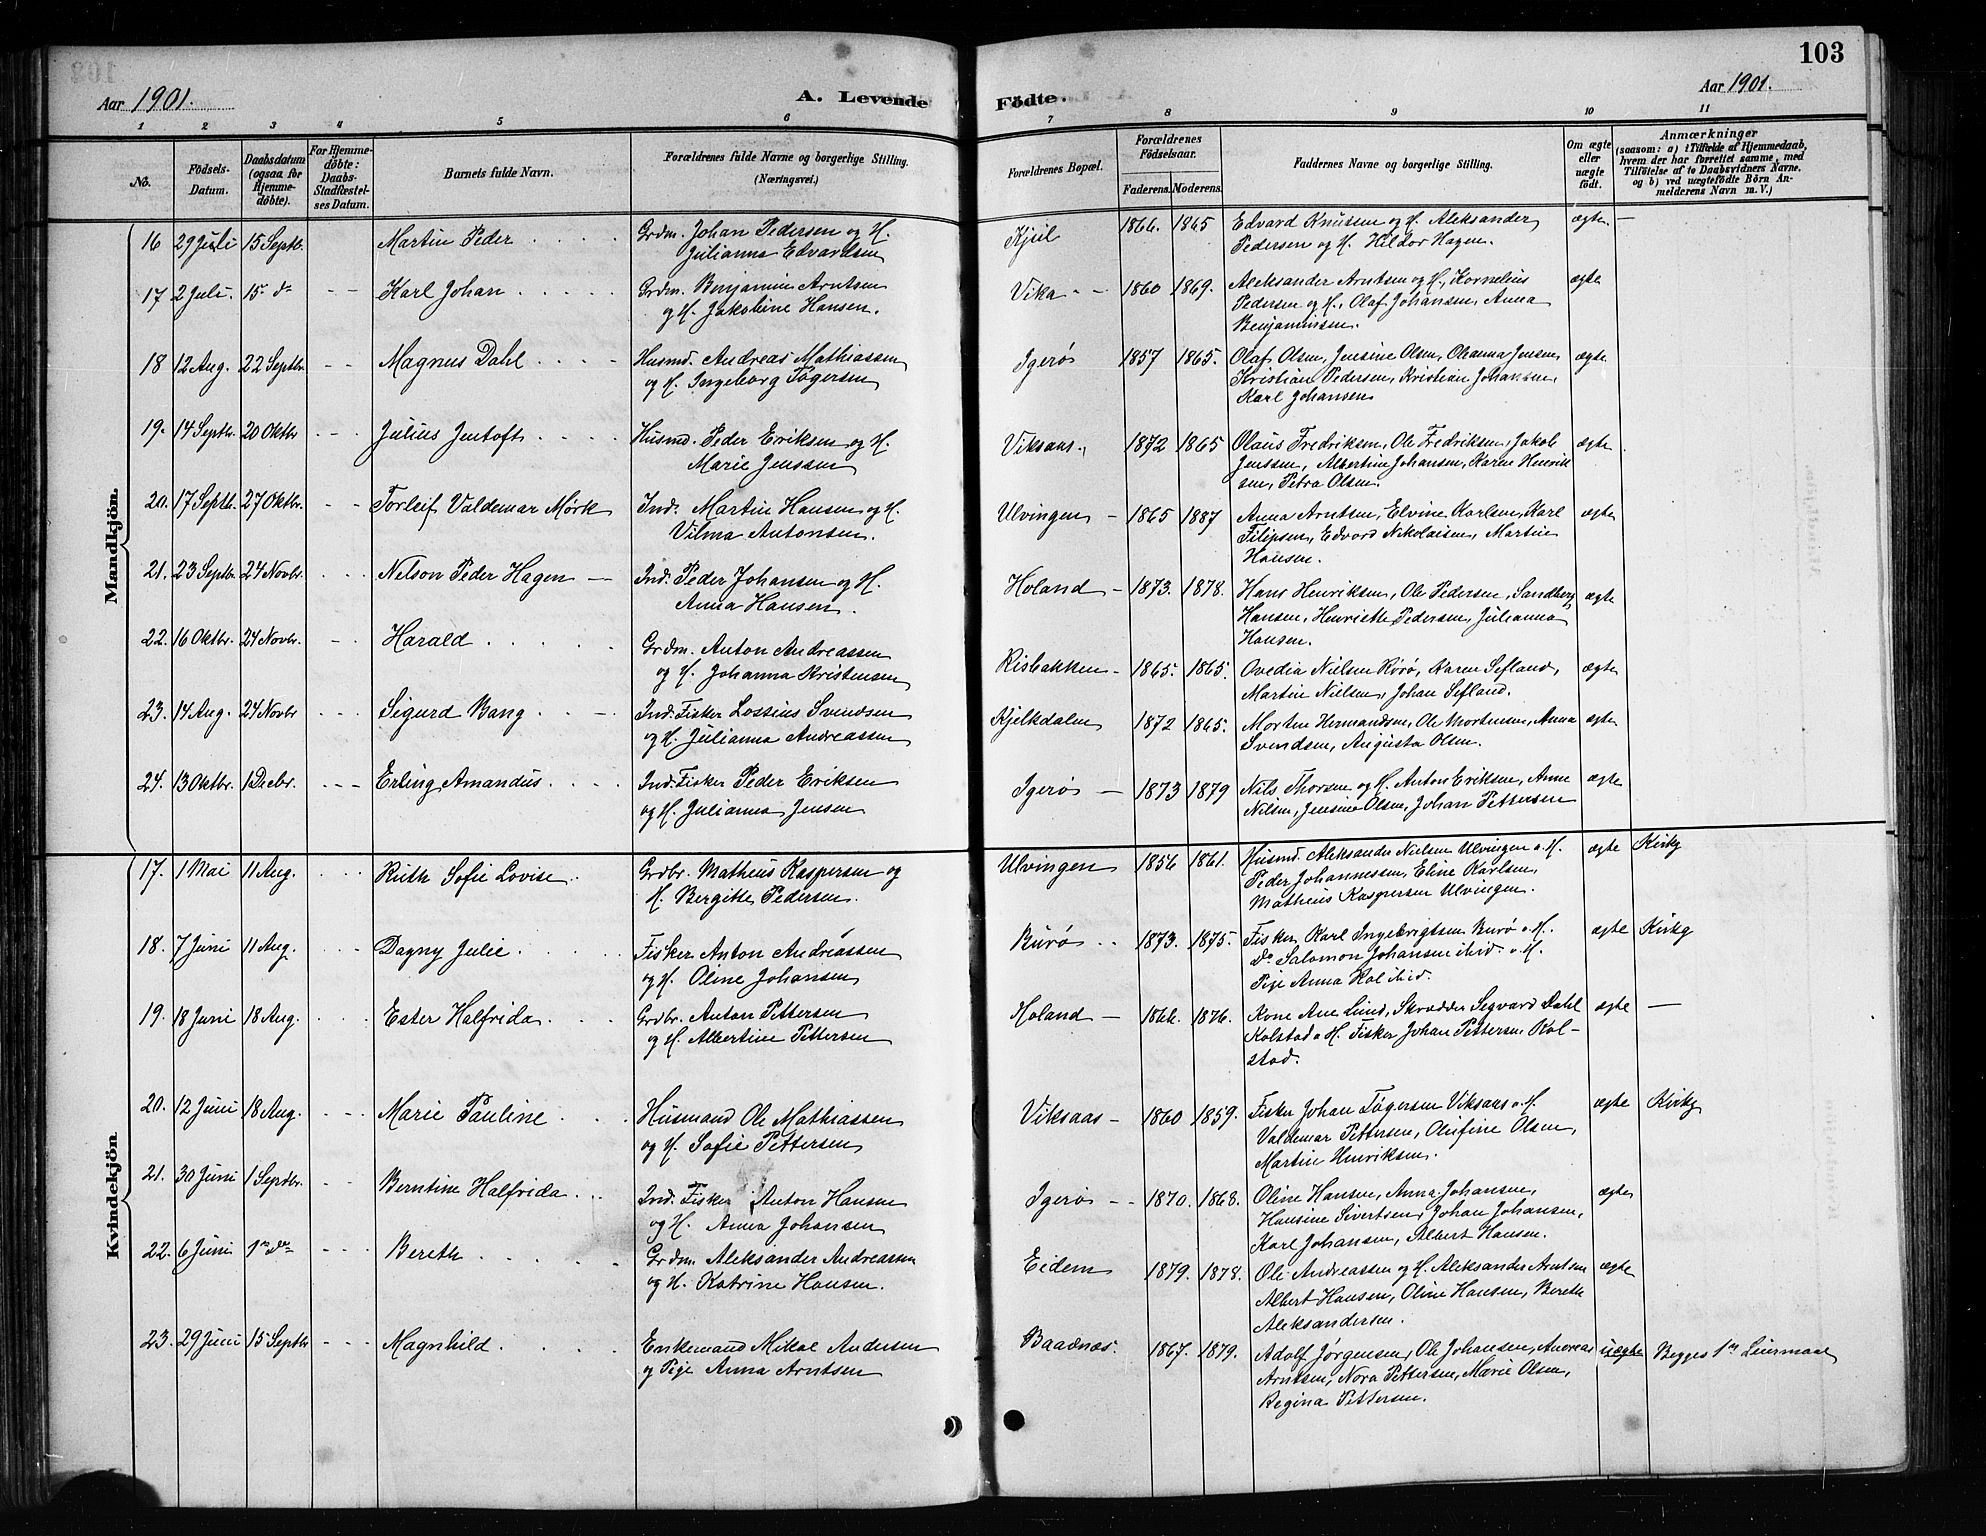 103
Aar 1901.
A. Levende Födte.
Aar 1901.
1 2 3 4 5 6 7 8 9 10 11
No.
Födsels-Datum.
Daabsdatum (ogsaa for Hjemme-döbte).
For Hjemme-döbte: Daabs-Stadfæstel-ses Datum.
Barnets fulde Navn.
Forældrenes fulde Navne og borgerlige Stilling. (Næringsvei.)
Forældrenes Bopæl.
Forældrenes Födselsaar.
Faderens. Moderens.
Faddernes Navne og borgerlige Stilling.
Om ægte eller uægte födt.
Anmærkninger
(saasom: a) i Tilfælde af Hjemmedaab,
hvem der har forrettet samme, med
Tilföielse af to Daabsvidners Navne,
og b) ved uægtefödte Börn An-
melderens Navn m. V.)
Mandkjön.
16 29 Juli 15 Septb. Martin Peder Grdm. Johan Pedersen og H. Kjul 1866. 1865 Edvard Knutsen og H. Aleksander ægte —
Julianna Edvardsen Pedersen og H. Hildor Hagen.
17 2 Juli. 15 do - - Karl Johan Grdm. Benjamin Arntsen Vika - - 1860 1869. Aleksander Arntsen og H. Kornelius ægte
og H. Jakobine Hansen. Pedersen og H. Olaf Johansen, Anna
Benjaminsen.
18 12 Aug. 22 Septbr. - - Magnus Dahl Husmd. Andreas Mathiassen Igerø 1857 1865. Olaf Olsen, Jensine Olsen, Oleanna Jensen, ægte
og H. Ingeborg Tøgersen Kristian Pedersen, Kristian Johansen,
Karl Johansen
19. 14 Septbr. 20 Oktbr - - - Julius Jentoft Husmd. Peder Eriksen og H. Viksaas. 1872 1865 Olaus Fredriksen, Ole Fredriksen, Jakob ægte
Marie Jenssen Jenssen, Albertine Johansen, Karen Henrik
sen, Petra Olsen.
20. 17 Septb. 27 Oktbr. - - Torleif Valdemar Mørk Ind. Martin Hansen og H. Ulvingen — 1865 1887 Anna Arntsen, Elvine Karlsen, Karl ægte
Vilma Antonsen. Filipsen, Edvard Nikolaisen, Martin
Hansen.
21. 23 Septbr. 24 Novbr. - - - Nelson Peder Hagen — Ind. Peder Johansen og H. Holand — 1873. 1878. Hans Henriksen, Ole Pedersen, Sandberg ægte
Anna Hansen. Hansen, Henriette Pedersen, Julianna
Hansen.
22. 16 Oktbr. 24 Novbr. - - Harald Grdm. Anton Andreassen Risbakken - 1865. 1865. Ovedia Nielsen Rørø, Karen Sefland, ægte
og H. Johanna Kristensen Martin Nielsen, Johan Sefland.
23. 14 Aug. 24 Novbr - - - Sigurd Bang Ind. Fisker Lossius Svendsen Kjelkdalen 1872 1865. Morten Hermandsen, Ole Mortensen, Anna ægte
og H. Julianna Andreassen Svendsen, Augusta Olsen.
24. 13 Oktbr. 1 Decbr. - - - Erling Amandus. Ind. Fisker Peder Eriksen Igerø — 1873 1879 Nils Thorsen og H. Anton Eriksen, Anne ægte
og H. Julianna Jensen Nilsen, Jensine Olsen, Johan Pettersen
Kvindekjön
17. 1 Mai 11 Aug. - - - Ruth Sofie Lovise. Grdbr. Matheus Kaspersen og Ulvingen 1856 1861. Husmd. Aleksander Nielsen Ulvingen o. H. ægte Kirkg
H. Bergitte Pedersen. Peder Johannessen, Eline Karlsen,
Matheus Kaspersen Ulvingen.
18. 7 Juni 11 Aug. - - - Dagny Julie Fisker Anton Andreassen Burø - - 1873. 1875. Fisker Karl Ingebrigtsen Burø o. H. ægte Kirkg
og H. Oline Johansen Do Salomon Johansen ibid. o. H.
Pige Anna Kol ibid.
19. 18 Juni 18 Aug. - - - Ester Halfrida Grdbr. Anton Pettersen Holand — 1866. 1876. Kone Ane Lund, Skrædder Segvard Dahl ægte —
og H. Albertine Pettersen Kolstad o H. Fisker Johan Pettersen Kol-
stad.
20. 12 Juni 18 Aug. - - - Marie Pauline Husmand Ole Mathiassen Viksaas - 1860 1859. Fisker Johan Tøgersen Viksaas o. H. ægte Kirkg
og H. Sofie Pettersen Valdemar Pettersen, Olufine Olsen,
Martin Henriksen.
21. 30 Juni 1 Septbr. - - Berntine Halfrida Ind. Fisker Anton Hansen Igerø - - 1870. 1868. Oline Hansen, Anna Johansen, ægte
og H. Anna Johansen Hansine Sivertsen, Johan Johansen,
Karl Johansen, Albert Hansen.
22. 6 Juni 1ste do - - - Bereth Grdm. Aleksander Andreassen Eidem 1879. 1878. Ole Andreassen og H. Aleksander Arntsen ægte
og H. Katrine Hansen. Albert Hansen, Oline Hansen, Bereth
Aleksandersen.
23. 29 Juni 15 Septbr - - - Magnhild Enkemand Mikal Andersen Baadnæs. 1867. 1879. Adolf Jørgensen, Ole Johansen, Andreas uægte Begges 1ste Leiermaal
og Pige Anna Arntsen Arntsen, Nora Pettersen, Marie Olsen,
Regina Pettersen.